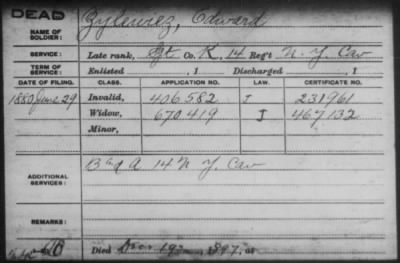 DEAD
NAME OF SOLDIER: Zylewiez, Edward
SERVICE: Late rank, Sgt Co. K, 14 Reg't N. Y. Cav
TERM OF SERVICE: Enlisted , 1 Discharged , 1
DATE OF FILING. CLASS. APPLICATION NO. LAW. CERTIFICATE NO.
1880 June 29 Invalid, 406 582 I 231961
Widow, 670 419 I 467132
Minor,
ADDITIONAL SERVICES: A 14 N. Y. Cav
REMARKS:
Died 19, 1897, at